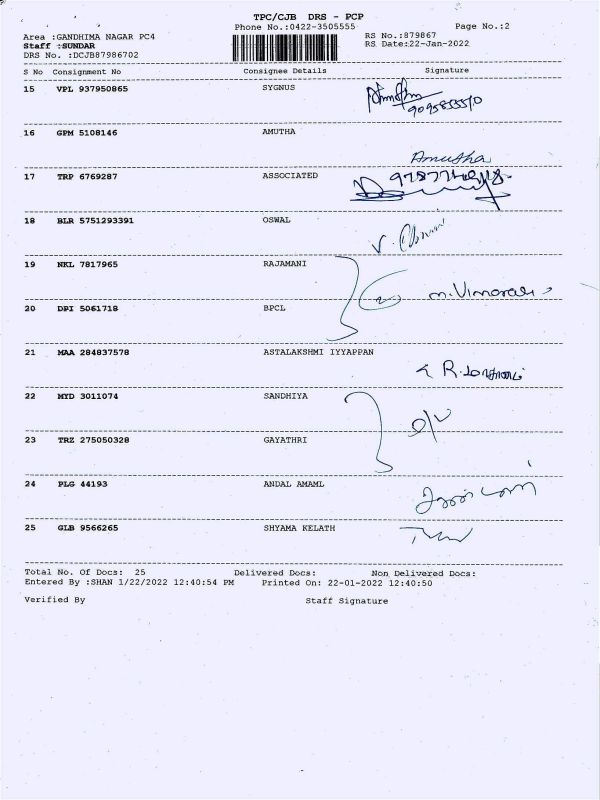 TPC/CJB DRS - PCP
Phone No.:0422-3505555 Page No.:2
Area :GANDHIMA NAGAR PC4 RS No.:879867
Staff :SUNDAR RS Date:22-Jan-2022
DRS No. :DCJB87986702
S No Consignment No Consignee Details Signature
15 VPL 937950865 SYGNUS
16 GPM 5108146 AMUTHA
Amutha
17 TRP 6769287 ASSOCIATED
18 BLR 5751293391 OSWAL
19 NKL 7817965 RAJAMANI
20 DPI 5061718 BPCL
21 MAA 284837578 ASTALAKSHMI IYYAPPAN
22 MYD 3011074 SANDHIYA
23 TRZ 275050328 GAYATHRI
24 PLG 44193 ANDAL AMAML
25 GLB 9566265 SHYAMA KELATH
Total No. Of Docs: 25 Delivered Docs: Non Delivered Docs:
Entered By :SHAN 1/22/2022 12:40:54 PM Printed On: 22-01-2022 12:40:50
Verified By Staff Signature